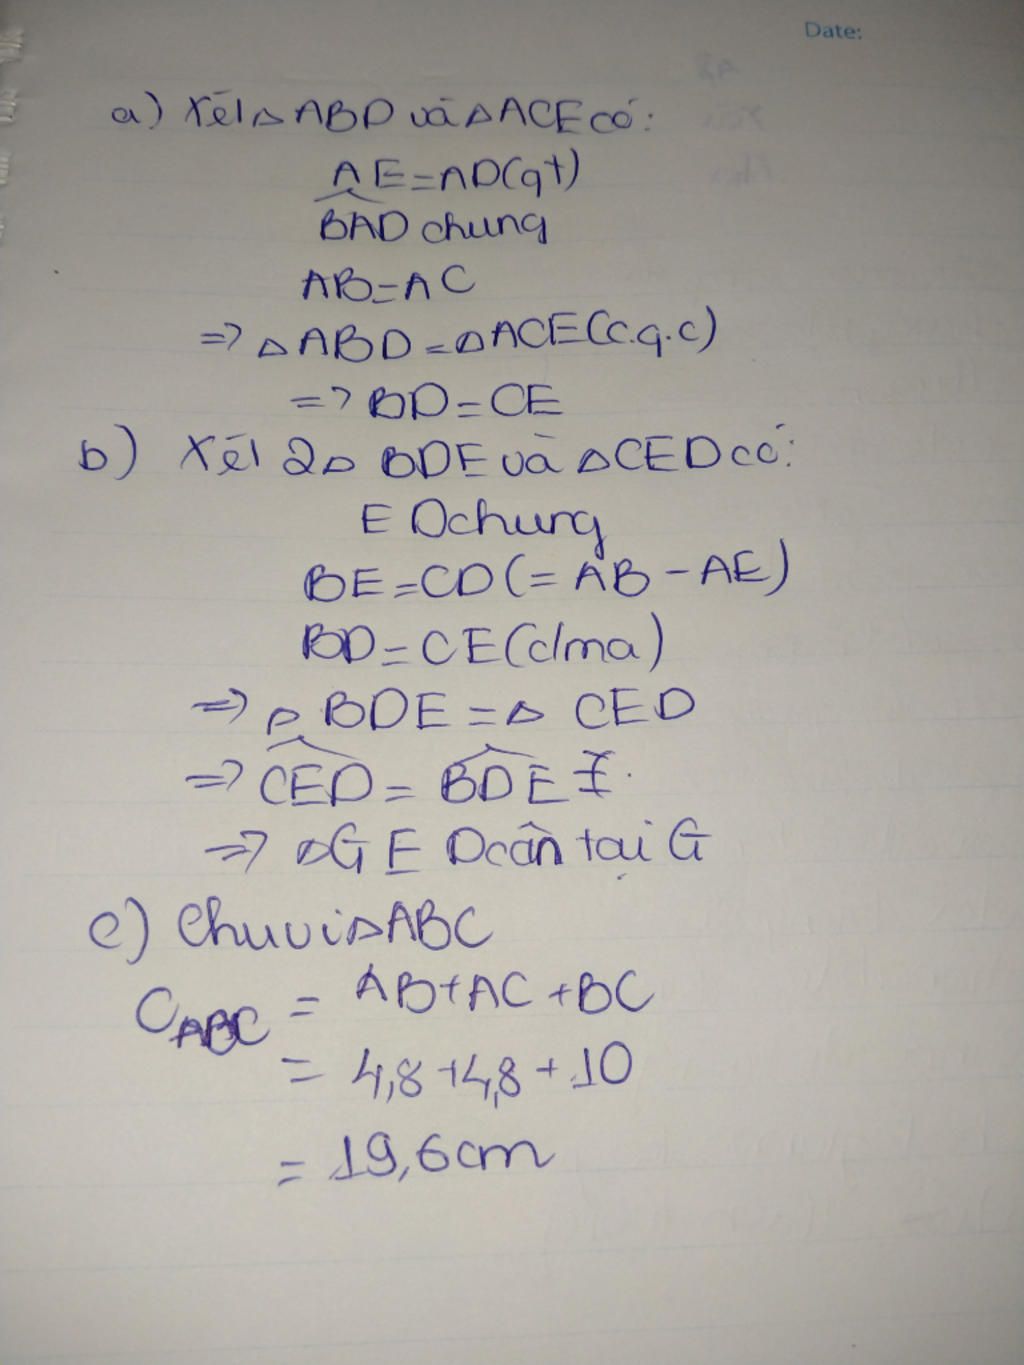 Date:
a) Xét △ ABD và △ ACE có:
AE = AD (gt)
B̂AD chung
AB = AC
=> △ ABD = △ ACE (c.g.c)
=> BD = CE
b) Xét 2△ BDE và △CED có:
ED chung
BE = CD (= AB - AE)
BD = CE (cma)
=> △ BDE = △ CED
=> ĈED = B̂DE
=> △GED cân tại G
c) Chu vi △ABC
C_ABC = AB + AC + BC
= 4,8 + 4,8 + 10
= 19,6 cm